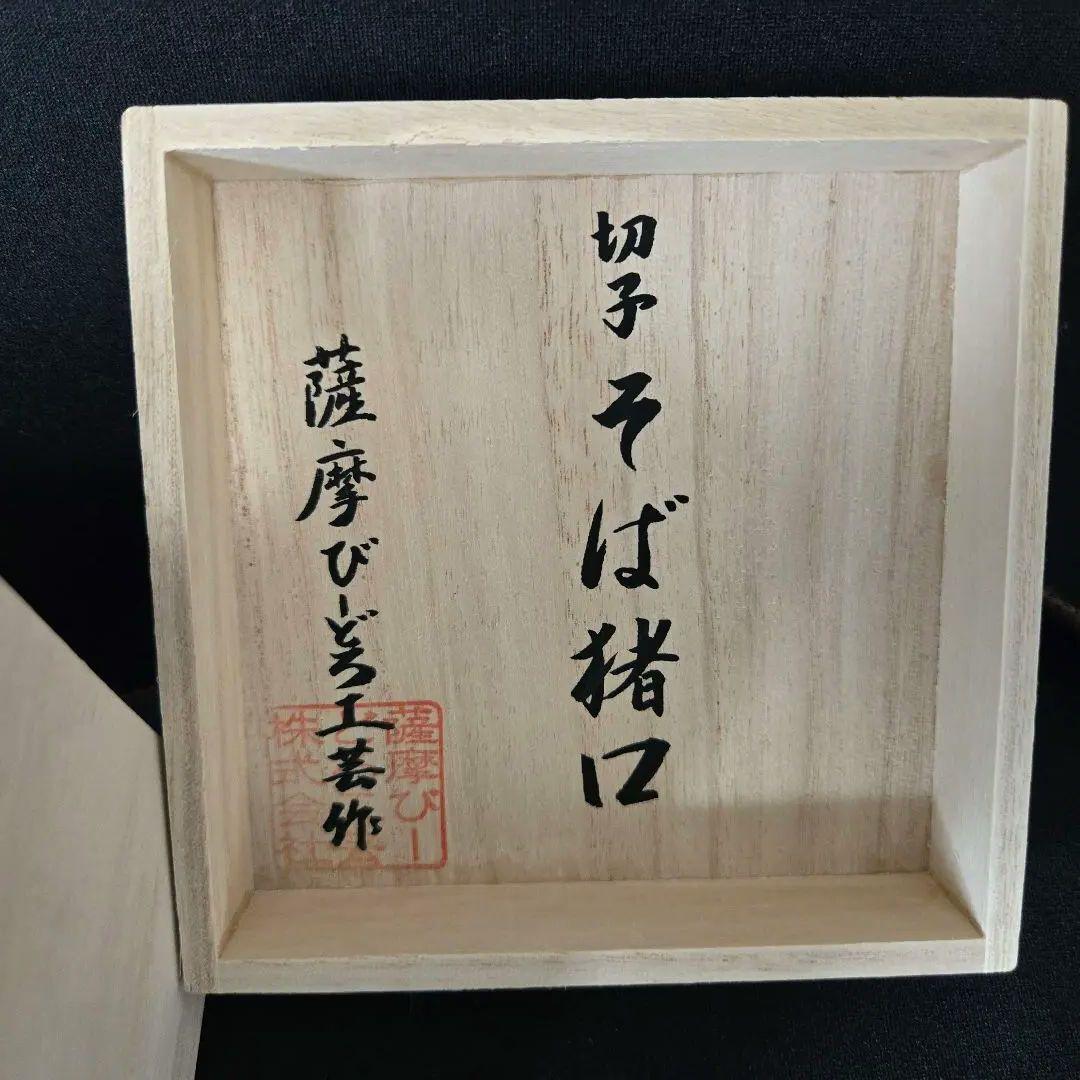 切子そば猪口
薩摩びーどろ工芸作
薩摩びー
株式会社